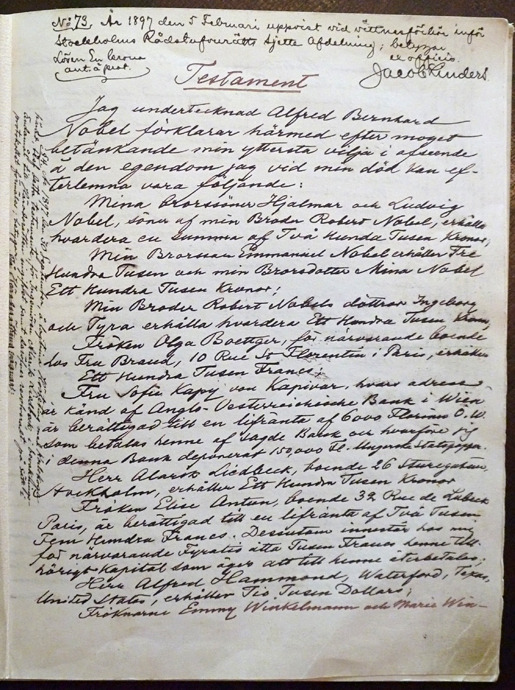 No 73. År 1897 den 5 Februari uppvist vid vittnesförhör inför
Stockholms Rådstufvurätts Sjette Afdelning; betygar
Lösen En krona
ex officio
ant. à prot.
Testament
Jag undertecknad Alfred Bernhard
Nobel förklarar härmed efter moget
betänkande min yttersta vilja i afseende
å den egendom jag vid min död kan ef-
terlemna vara följande:
Mina Brorssöner Hjalmar och Ludvig
Nobel, söner af min Broder Robert Nobel, erhålla
hvardera en summa af Två Hundra Tusen Kronor;
Min Brorson Emmanuel Nobel erhåller Tre
Hundra Tusen och min Brorsdotter Mina Nobel
Ett Hundra Tusen Kronor;
Min Broder Robert Nobels döttrar Ingeborg
och Tyra erhålla hvardera Ett Hundra Tusen Kronor;
Fröken Olga Boettger, för närvarande boende
hos Fru Brand, 10 Rue St Florentin i Paris, erhåller
Ett Hundra Tusen Francs;
Fru Sofie Kapy von Kapivar, hvars adress
är känd af Anglo-Oesterreichische Bank i Wien
är berättigad till en lifränta af 6000 Florins Ö.W.
som betalas henne af sagde Bank och hvarföre jag
i denna Bank deponerat 150,000 Fl. i Ungerska statspapper.
Herr Alarik Liedbeck, boende 26 Sturegatan,
Stockholm, erhåller Ett Hundra Tusen Kronor
Fröken Elise Antun, boende 32 Rue de Lubeck
Paris, är berättigad till en lifränta af Två Tusen
Fem Hundra Francs. Dessutom innestår hos mig
för närvarande Fyratio åtta Tusen Francs henne till-
hörigt Kapital som äger att till henne återbetalas;
Herr Alfred Hammond, Waterford, Texas,
United States, erhåller Tio Tusen Dollars;
Fröknarne Emmy Winkelmann och Marie Win-